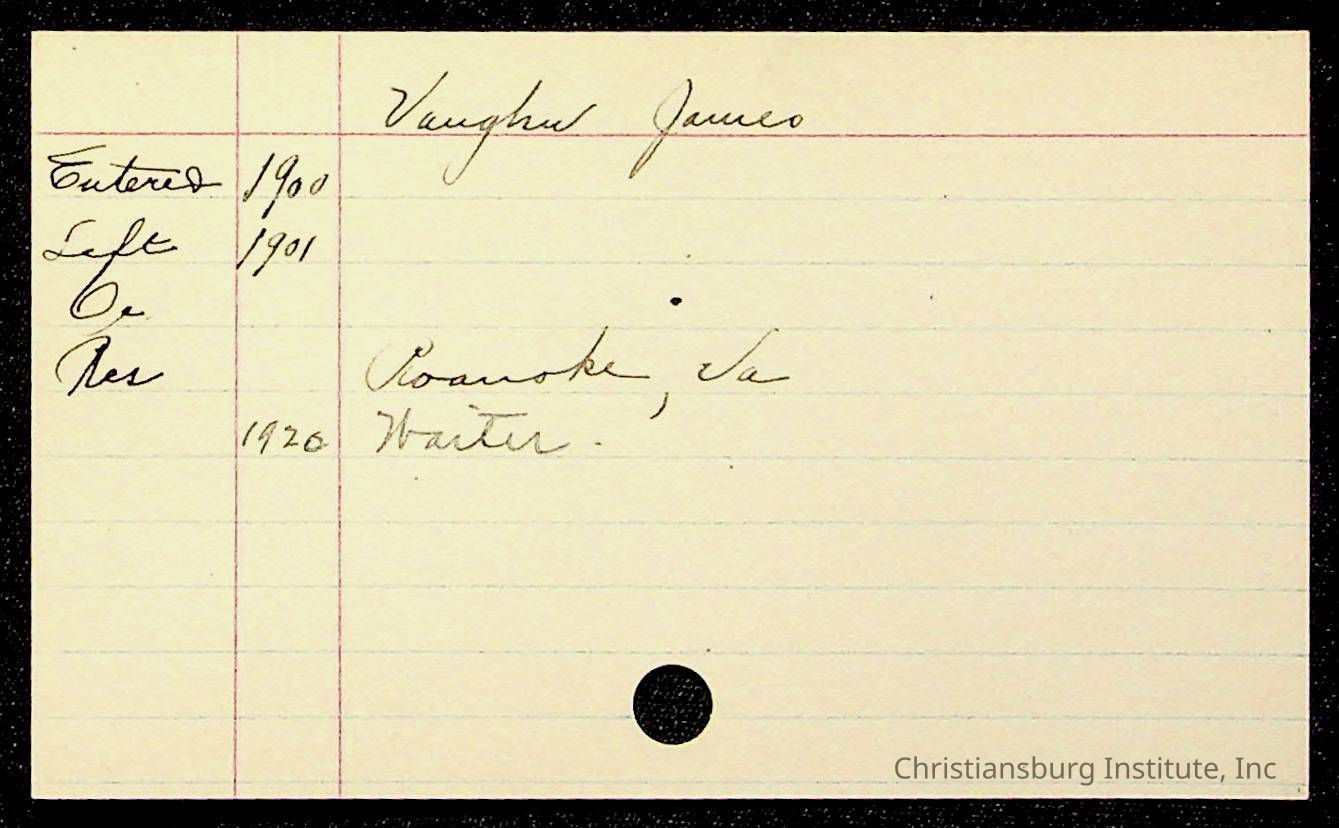 Vaughn James
Entered 1900
Left 1901
Oc
Res Roanoke, Va
1920 Waiter.
Christiansburg Institute, Inc